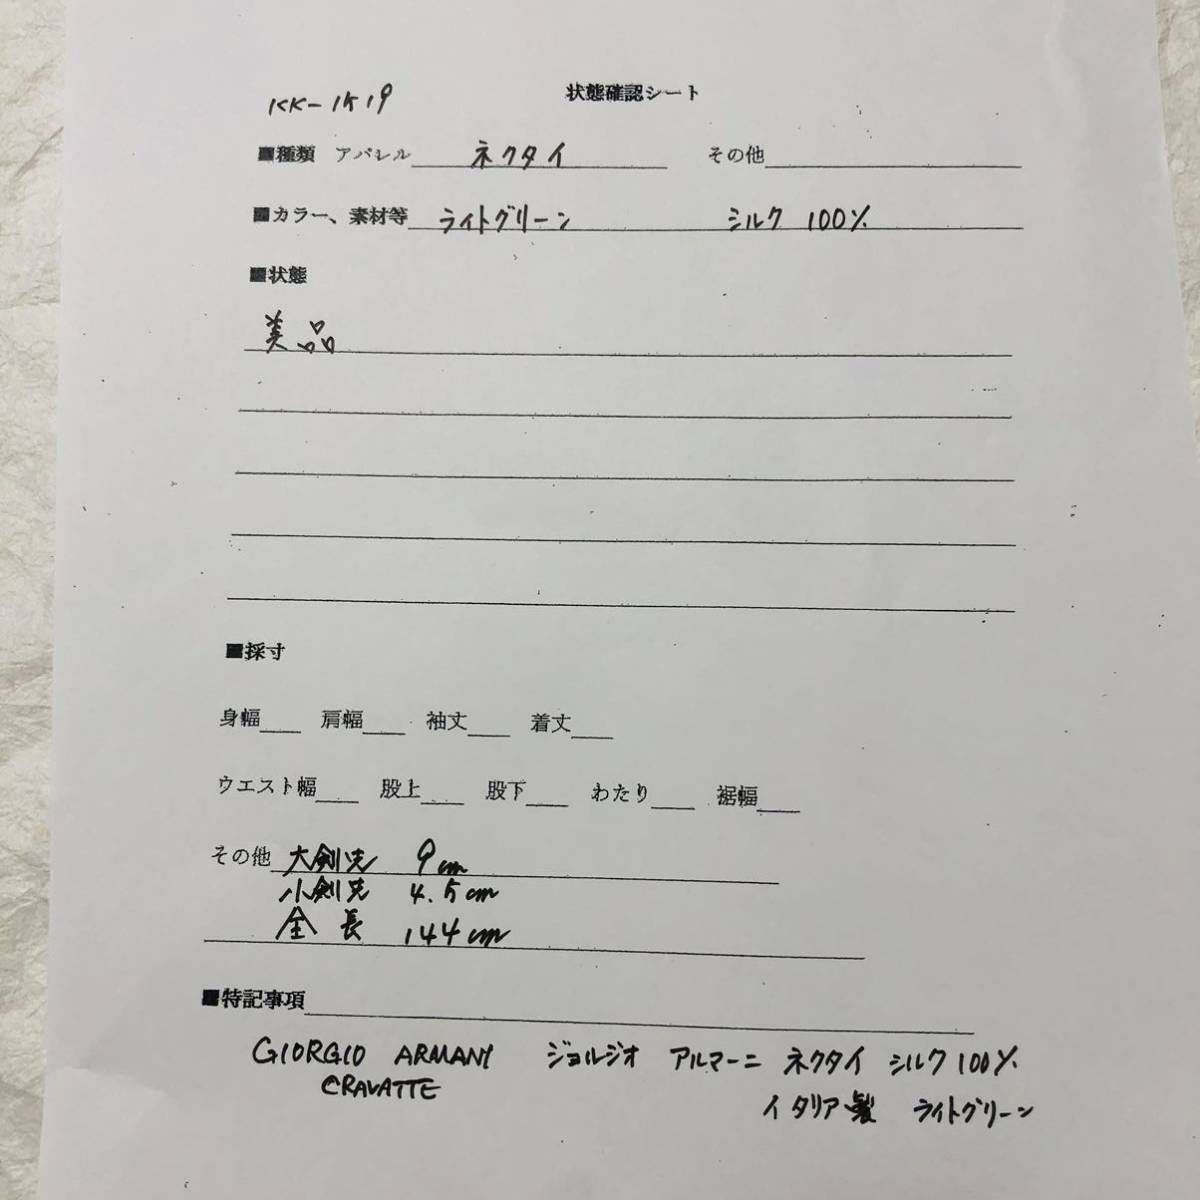 状態確認シート
KK-1K19
■種類 アパレル ネクタイ その他
■カラー、素材等 ライトグリーン シルク 100%
■状態
美品
■採寸
身幅 肩幅 袖丈 着丈
ウエスト幅 股上 股下 わたり 裾幅
その他 大剣先 9cm
小剣先 4.5cm
全長 144cm
■特記事項
GIORGIO ARMANI ジョルジオ アルマーニ ネクタイ シルク100%
CRAVATTE イタリア製 ライトグリーン